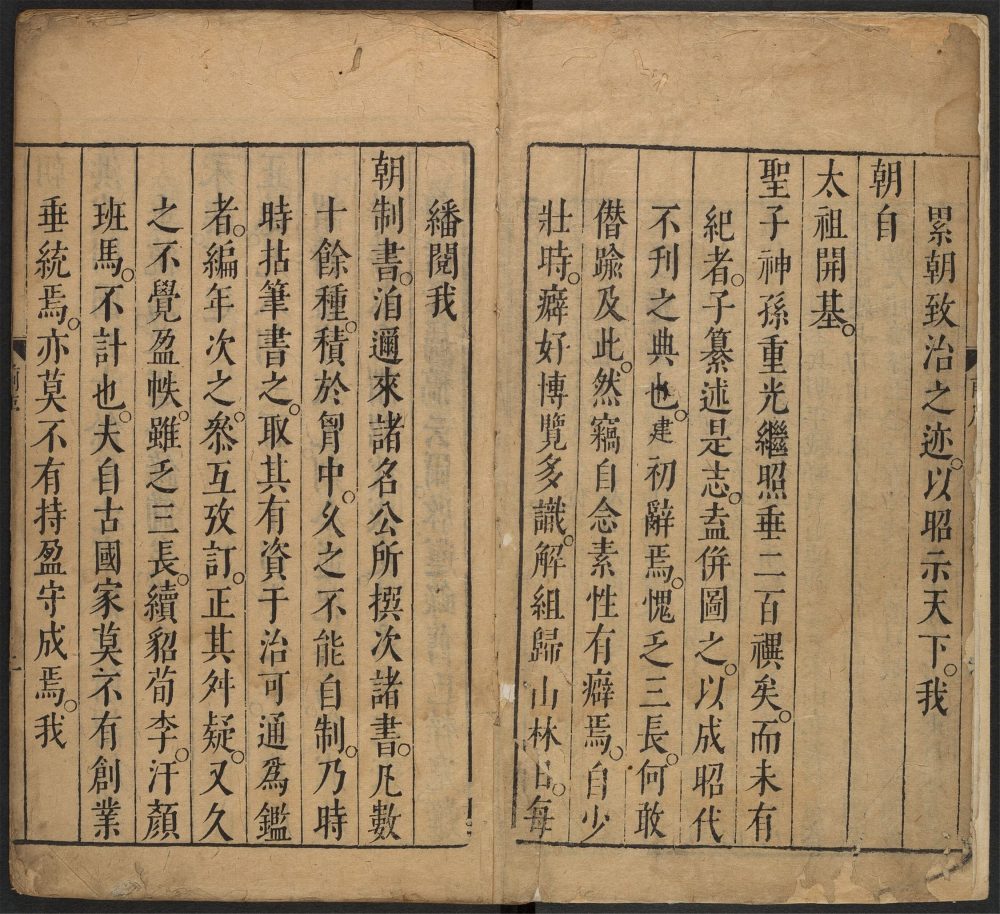 累朝致治之迹。以昭示天下。我
朝自
太祖開基。
聖子神孫重光繼照垂二百禩矣。而未有
紀者。子纂述是志。盍併圖之。以成昭代
不刊之典也。建初辭焉。愧乏三長。何敢
僭踰及此。然竊自念素性有癖焉。自少
壯時。癖好博覽多識。解組歸山林日。每
繙閱我
朝制書。洎邇來諸名公所撰次諸書。凡數
十餘種。積於胷中。久之不能自制。乃時
時拈筆書之。取其有資于治可通爲鑑
者。編年次之。叅互攷訂。正其舛疑。又久
之不覺盈帙。雖乏三長。續貂荀李。汗顏
班馬。不計也。夫自古國家莫不有創業
垂統焉。亦莫不有持盈守成焉。我